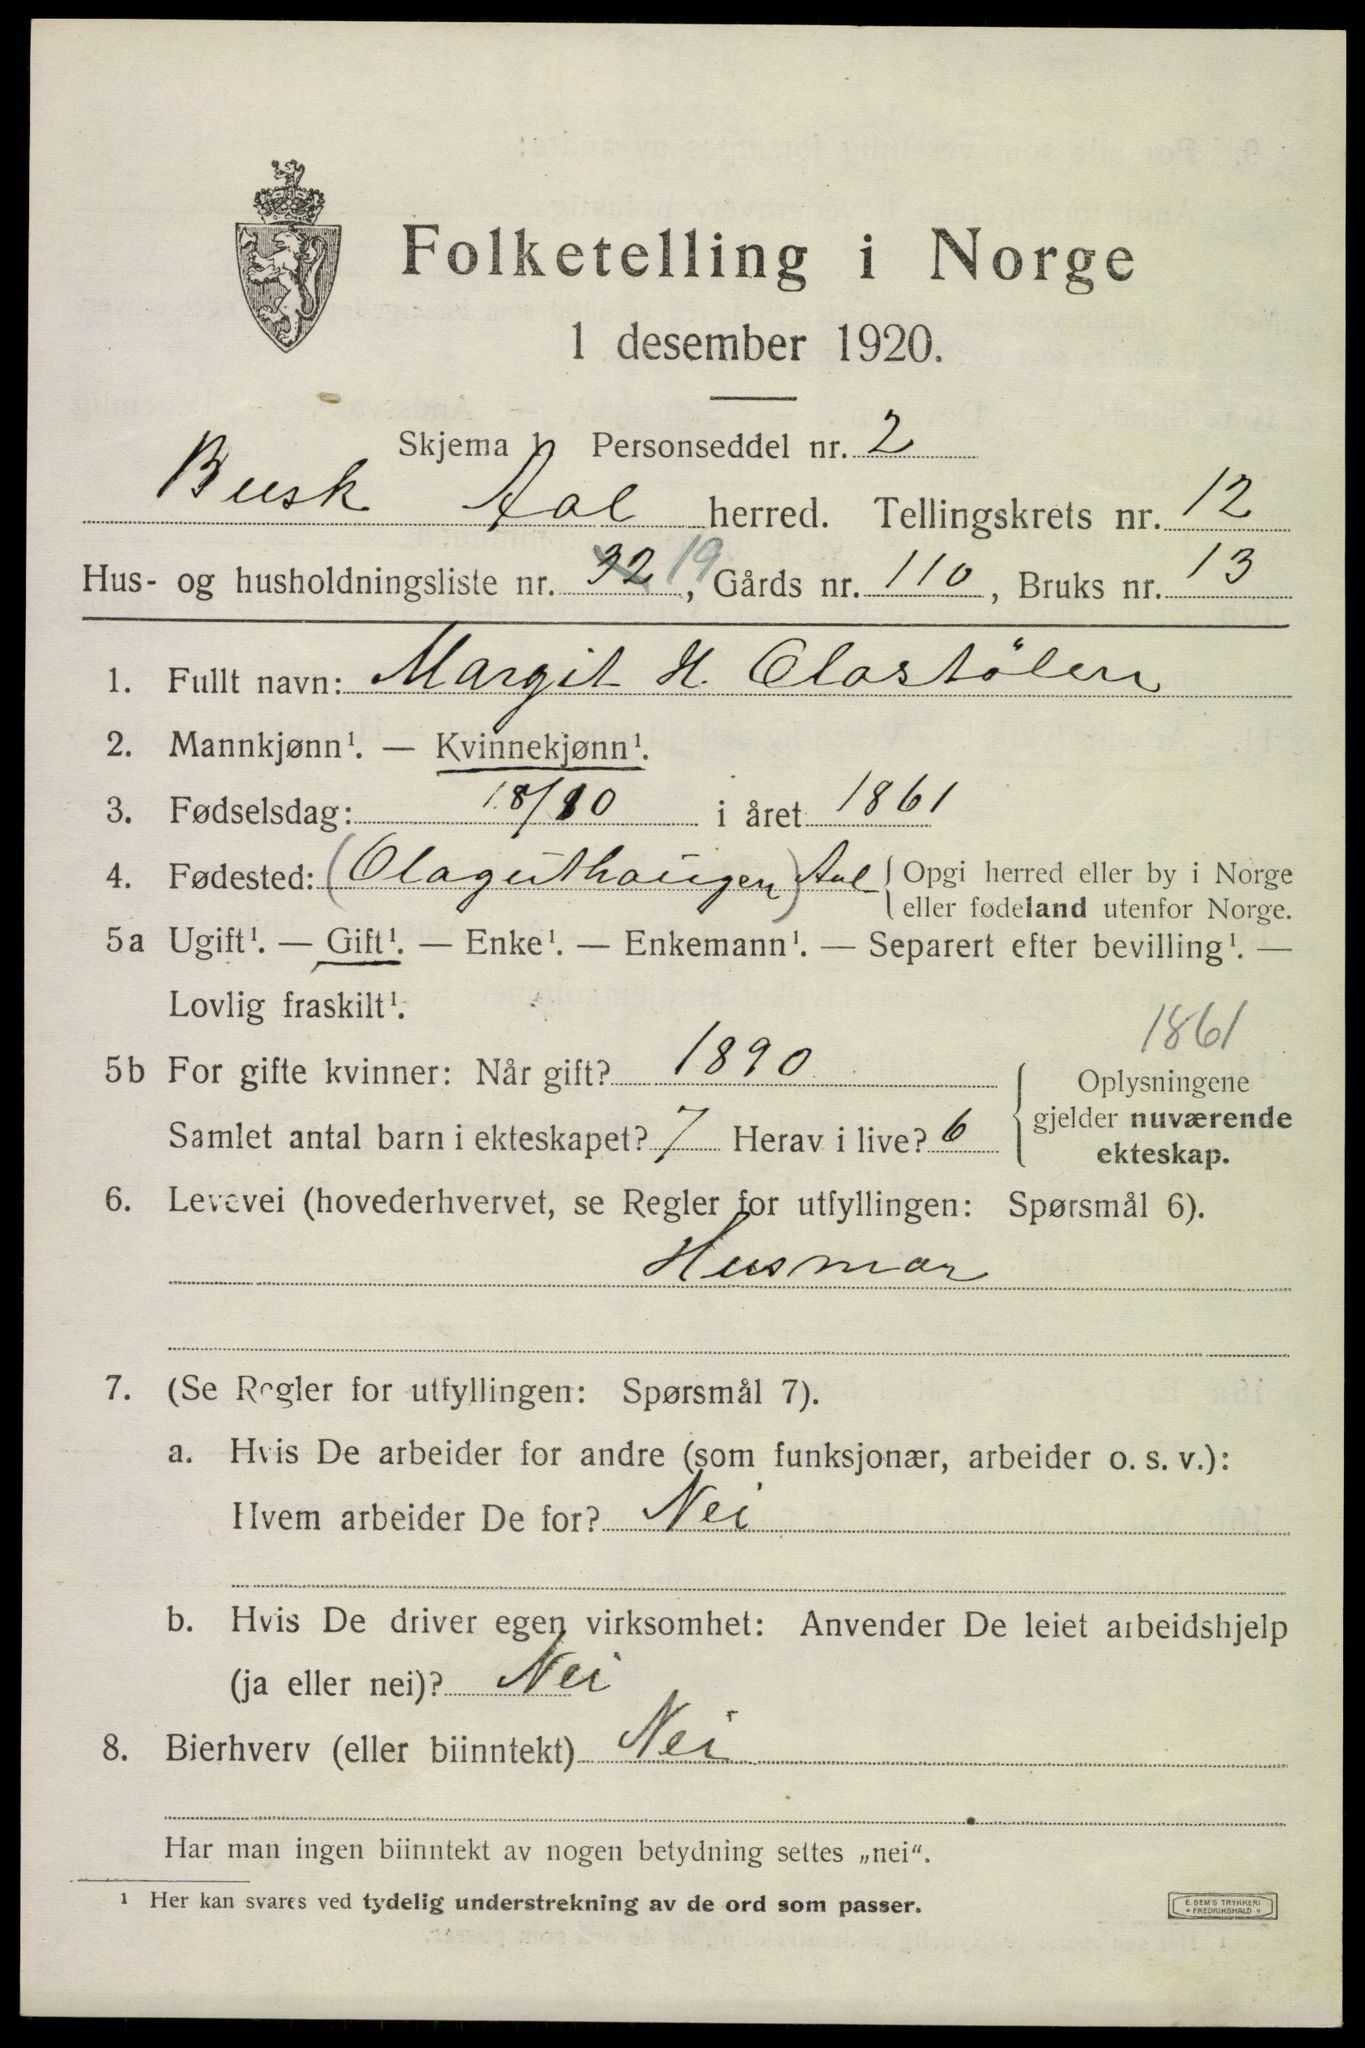 Folketelling i Norge
1 desember 1920.
Skjema 1 Personseddel nr. 2
Busk Aal herred. Tellingskrets nr. 12
Hus- og husholdningsliste nr. 32 19, Gårds nr. 110, Bruks nr. 13
1. Fullt navn: Margit H. Olastölen
2. Mannkjønn¹. — Kvinnekjønn¹.
3. Fødselsdag: 18/10 i året 1861
4. Fødested: (Olaguthaugen) Aal { Opgi herred eller by i Norge
eller fødeland utenfor Norge.
5a Ugift¹. — Gift¹. — Enke¹. — Enkemann¹. — Separert efter bevilling¹. —
Lovlig fraskilt¹.
1861
5b For gifte kvinner: Når gift? 1890
Samlet antal barn i ekteskapet? 7 Herav i live? 6
Oplysningene
gjelder nuværende
ekteskap.
6. Levevei (hovederhvervet, se Regler for utfyllingen: Spørsmål 6).
Husmor
7. (Se Regler for utfyllingen: Spørsmål 7).
a. Hvis De arbeider for andre (som funksjonær, arbeider o. s. v.):
Hvem arbeider De for? Nei
b. Hvis De driver egen virksomhet: Anvender De leiet arbeidshjelp
(ja eller nei)? Nei
8. Bierhverv (eller biinntekt) Nei
Har man ingen biinntekt av nogen betydning settes „nei“.
¹ Her kan svares ved tydelig understrekning av de ord som passer.
E. SEM'S TRYKKERI
* FREDRIKSHALD *